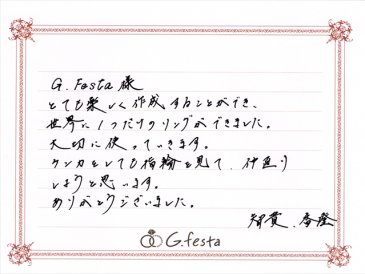 G.Festa様
とても楽しく作成することができ、
世界に1つだけのリングができました。
大切に使っていきます。
ケンカをしても指輪を見て、仲直り
しようと思います。
ありがとうございました。
智貴、香澄
G.festa